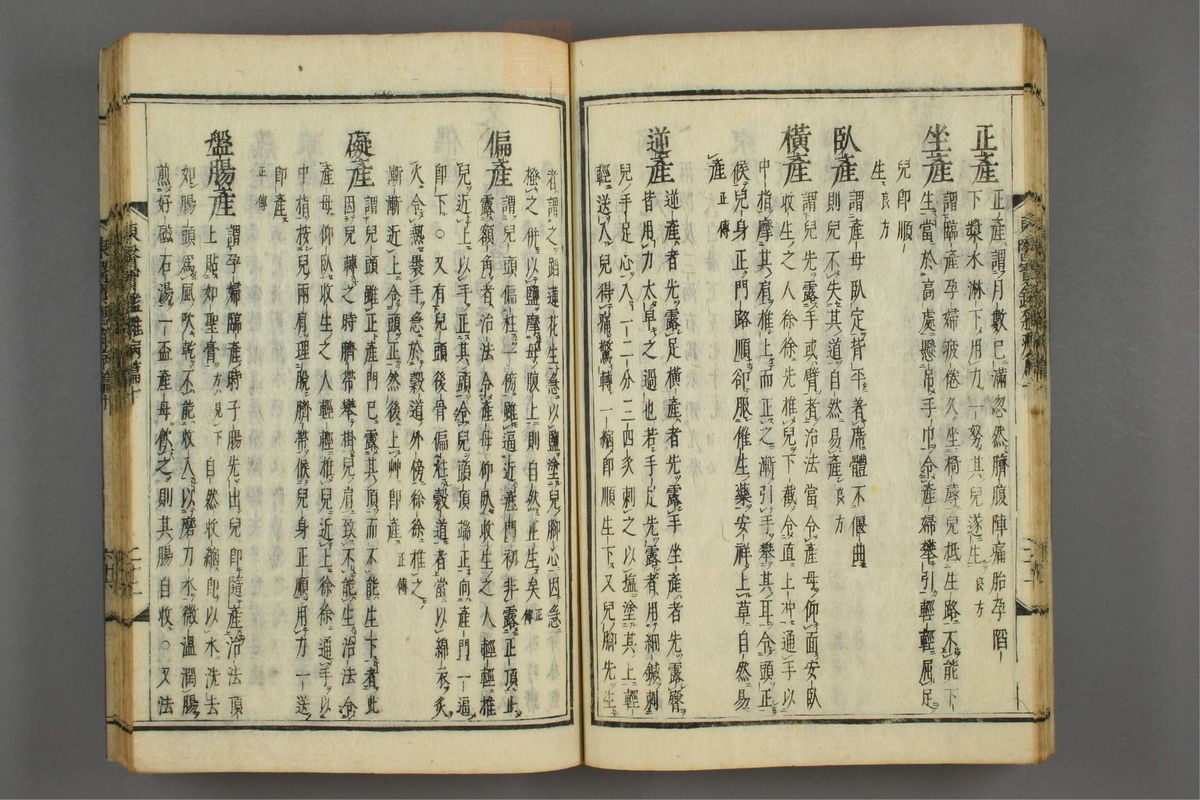 正產
正產謂月數已滿忽然臍腹陣痛胎孕陷
下漿水淋下用力一努其兒遂生良方
坐產
謂臨產孕婦疲倦久坐椅蓐兒抵生路不能下
生當於高處懸吊手巾令產婦攀引輕輕屈足
兒卽順
生良方
臥產
謂產母臥定背平著席體不偃曲
則兒不失其道自然易產良方
橫產
謂兒先露手或臂者治法當令產母仰面安臥
收生之人徐徐先推兒下截令直上冲通手以
中指摩其肩推上而正之漸引手攀其耳令頭正
候兒身正門路順却服催生藥安祥上草自然易
產正傳
逆產
逆產者先露足橫產者先露手坐產者先露臀
皆用力太早之過也若手足先露者用細鍼刺
兒手足心入一二分三四次刺之以塩塗其上輕
輕送入兒得痛驚轉一縮卽順生下又兒脚先生
者謂之踏蓮花生急以鹽塗兒脚心因急
搔之併以鹽摩母腹上則自然正生矣正傳
偏產
謂兒頭偏柱一傍雖逼近產門初非露正頂止
露額角者治法令產母仰臥收生之人輕輕推
兒近上以手正其頭令兒頭頂端正向產門一逼
卽下○又有兒頭後骨偏柱穀道者當以綿衣炙
火令熱裹手急於穀道外傍徐徐推之
漸漸近上令頭正然後上艸卽產正傳
礙產
謂兒頭雖正產門已露其頂而不能生下者此
因兒轉之時臍帶攀掛兒肩致不能生治法令
產母仰臥收生之人輕推兒近上徐徐通手以
中指按兒兩肩理脫臍帶候兒身正順用力一送
卽產
正傳
盤腸產
謂孕婦臨產時子腸先出兒卽隨產治法頂
上貼如聖膏方見下自然收縮卽以水洗去
如腸頭爲風吹乾不能收入以磨刀水微溫潤腸
煎好磁石湯一盃產母飮之則其腸自收○又法